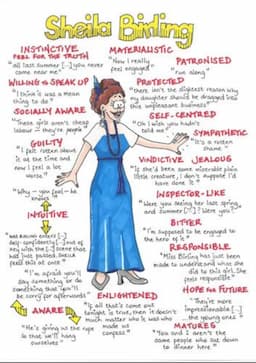 Sheila Birling
INSTINCTIVE
FEEL FOR THE TRUTH
"all last summer [...] you never
came near me"
WILLING to SPEAK UP
"I think it was a mean
thing to do"
SOCIALLY AWARE
"these girls aren't cheap
labour – they're people"
GUILTY
"I felt rotten about
it at the time and
now I feel a lot
worse"
"Why – you fool – he
knows"
INTUITIVE
self-confidently [...] out of
key with the [...] scene that
has just passed. SHEILA
feels this at once"
"I'm afraid you'll
say something or do
something that you'll
be sorry for afterwards"
AWARE
"He's giving us the rope
so that we'll hang
ourselves"
MATERIALISTIC
"Now I really
feel engaged"
PATRONISED
"run along"
PROTECTED
"there isn't the slightest reason why
my daughter should be dragged into
this unpleasant business"
SELF-CENTRED
"Oh I wish you hadn't
told me"
SYMPATHETIC
"It's a rotten
shame"
VINDICTIVE JEALOUS
"If she'd been some miserable plain
little creature, I don't suppose I'd
have done it"
INSPECTOR-LIKE
"Were you seeing her last spring
and summer [...] Were you?"
BITTER
"I'm supposed to be engaged to
the hero of it"
RESPONSIBLE
"Miss Birling has just been
made to understand what she
did to this girl. She
feels responsible"
HOPE for FUTURE
"They're more
impressionable [...]
the young ones"
ENLIGHTENED
"If all that's come out
tonight is true, then it doesn't
much matter who it was who
made us
confess"
MATURES
"You and I aren't the
same people who sat down
to dinner here"